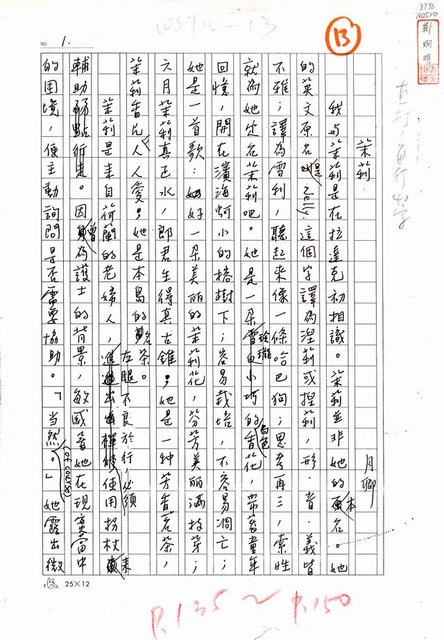 13
NO. 1.
鄭烱明
茉莉
月卿
我與茉莉是在拉達克初相識。茉莉並非她的本名。她
的英文原名是，這個字譯為涅莉或捏莉，形、音、義皆
不雅；譯為雪利，聽起來像一條哈巴狗；思考再三，索性
就為她定名茉莉吧。她是一朵玲瓏小巧的白色香花，帶著童年
回憶，開在濱海蚵小的榕樹下；容易栽培，不容易凋亡；
她是一首歌：好一朵美麗的茉莉花，芬芳美麗滿枝芽；
六月茉莉真正水，郎君生得真古錐；她是一种芳香茗茶，
茉莉香片人人愛；她是本島的名茶。
茉莉是來自荷蘭的老婦人，左腿不良於行，必須使用拐杖來
輔助行走。因曾為護士的背景，敏感著她在現實當中
的困境，便主動詢問是否需要協助。「當然。」(of course)她露出微
25×12
P.135～P.150